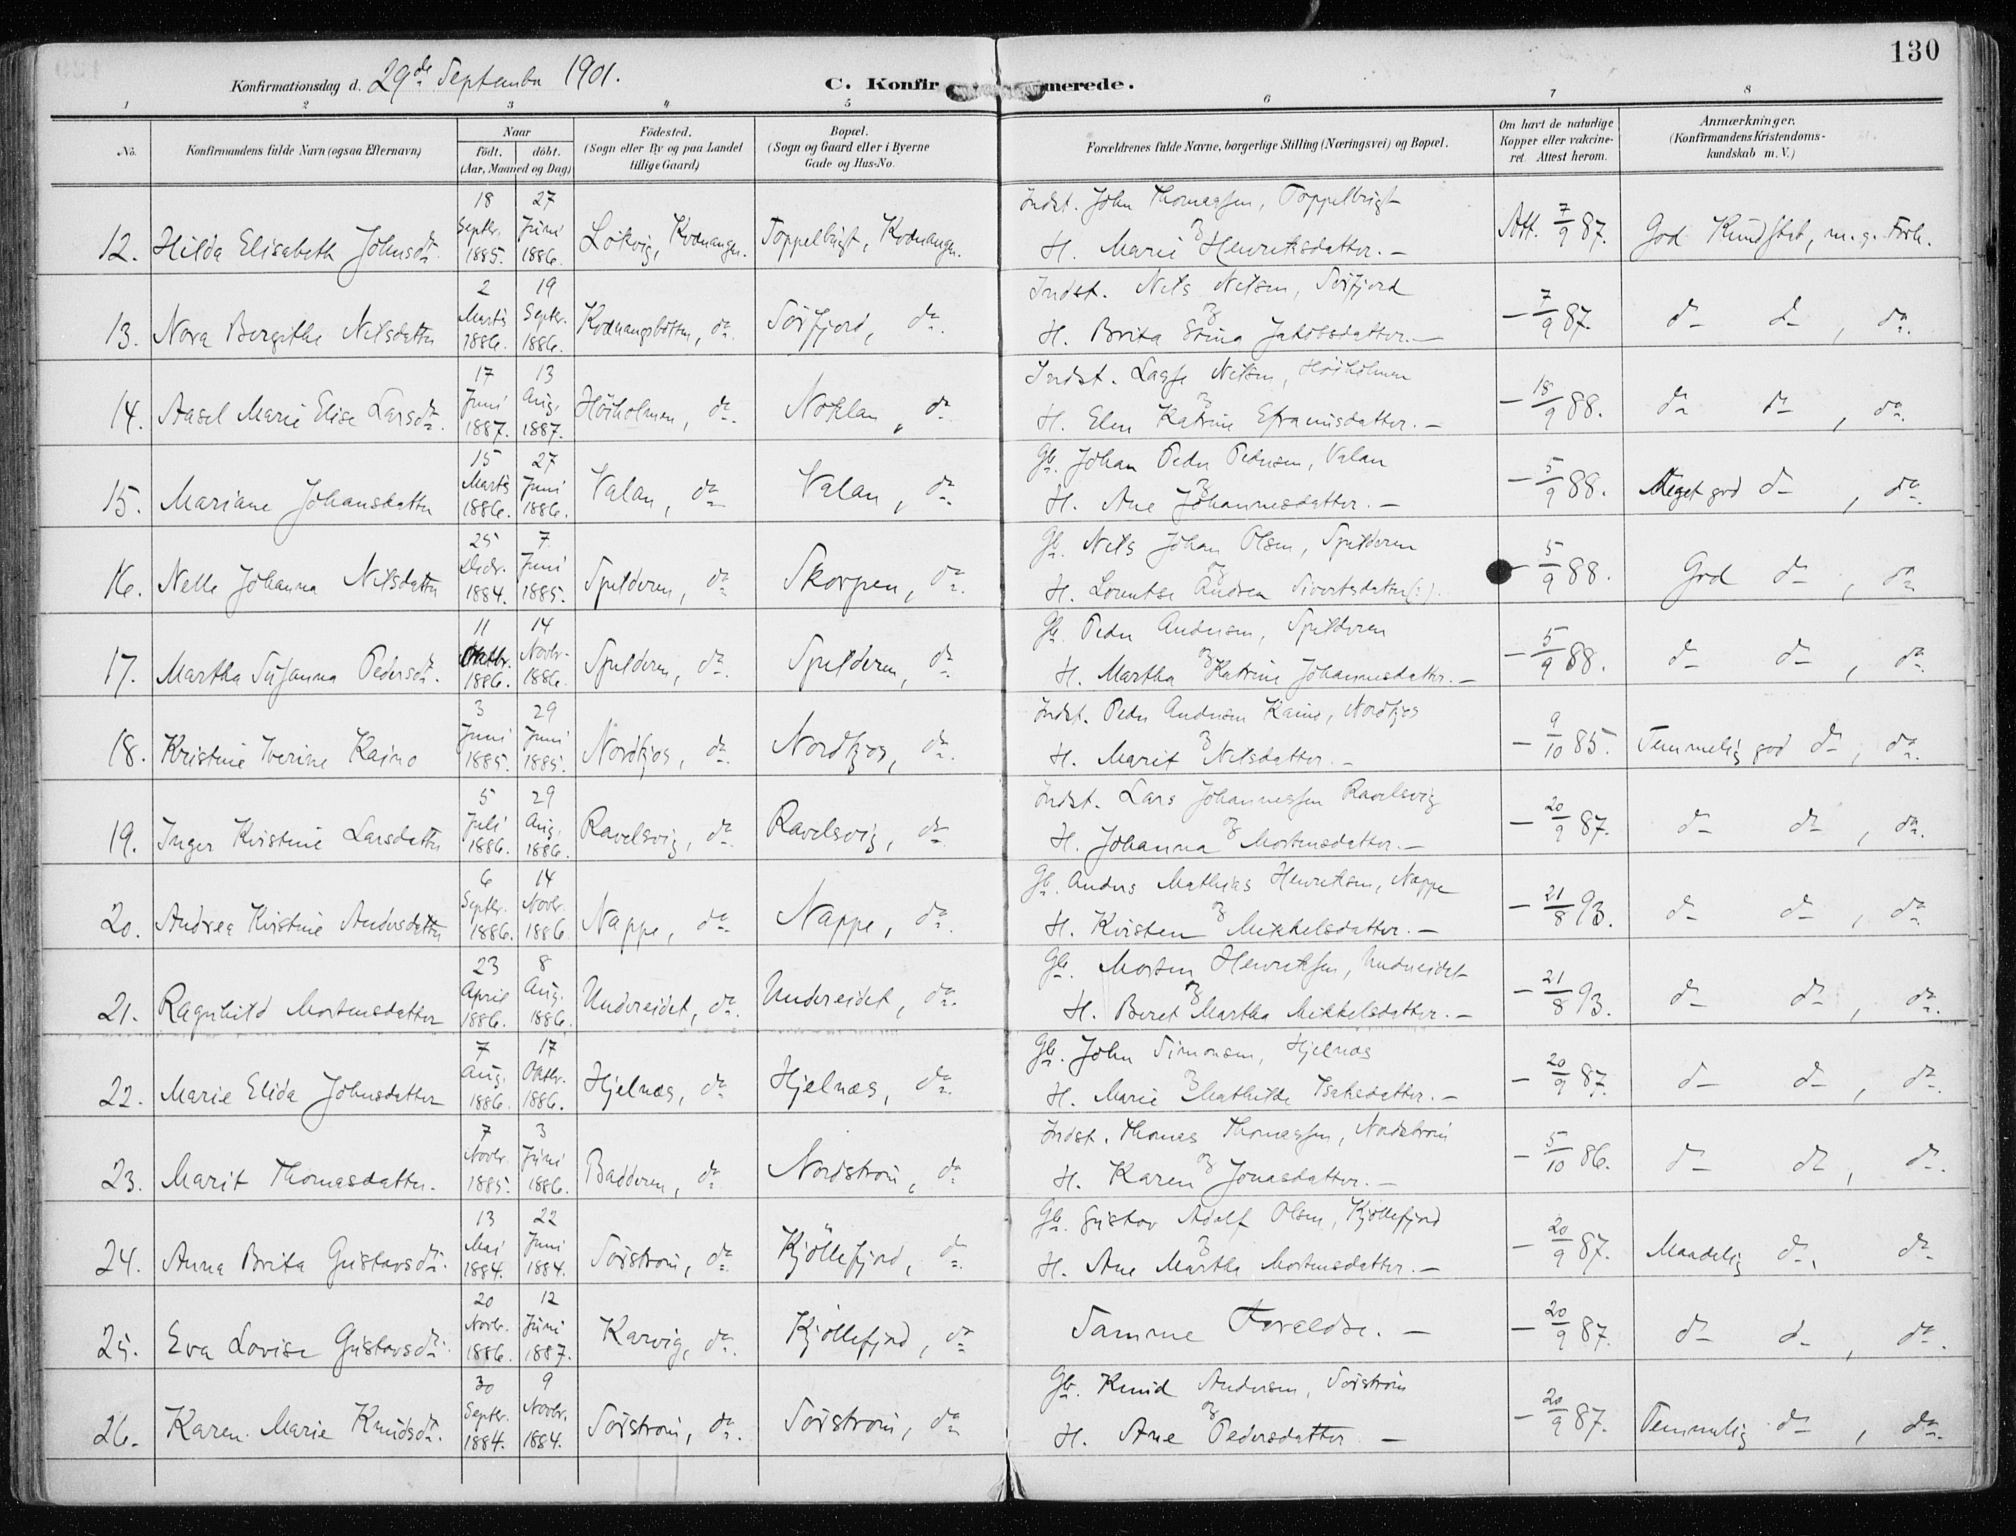 130
Konfirmationsdag d. 29de September 1901.
C. Konfirmerede.
1 2 3 4 5 6 7 8
No. Konfirmandens fulde Navn (ogsaa Efternavn) Naar født, døbt. (Aar, Maaned og Dag) Fødested. (Sogn eller By og paa Landet tillige Gaard) Bopæl. (Sogn og Gaard eller i Byerne Gade og Hus-No. Forældrenes fulde Navne, borgerlige Stilling (Næringsvei) og Bopæl. Om havt de naturlige Kopper eller vakcineret. Attest herom. Anmærkninger. (Konfirmandens Kristendomskundskab m. V.)
12. Hilda Elisabeth Johnsdr. 18 Septbr. 1885. 27 Juni 1886. Løkvig, Kvænangen. Toppelbugt, Kvænangen. Indst. John Thomassen, Toppelbugt
og H. Marie Henriksdatter. — Att. 7/9 87. God Kundskab, m. g. Forh.
13. Nora Bergithe Nilsdatter 2 Marts 1886. 19 Septbr. 1886. Kvænangsbotten, do. Sørfjord, do. Indst. Nils Nilsen, Sørfjord
og H. Brita Stina Jakobsdatter. — — 7/9 87. do do, do.
14. Aasel Marie Elise Larsdr. 17 Juni 1887. 13 Aug. 1887. Høiholmen, do. Noklan, do. Indst. Lasse Nilsen, Høiholmen
og H. Elen Katrine Efraimsdatter. — — 18/9 88. do do, do.
15. Mariane Johansdatter 15 Marts 1886. 27 Juni 1886. Valan, do. Valan, do. Gb. Johan Peder Pedersen, Valan
og H. Ane Johannesdatter. — — 5/9 88. Meget god do, do.
16. Nelle Johanna Nilsdatter 25 Decbr. 1884. 7 Juni 1885. Spilderen, do. Skorpen, do. Gb. Nils Johan Olsen, Spilderen
og H. Lorentse Andrea Sivertsdatter(?). — 5/9 88. God do, do.
17. Martha Susanna Pedersdr. 11 Oktbr. 1886. 14 Novbr. 1886. Spilderen, do. Spilderen, do. Gb. Peder Andersen, Spilderen
og H. Martha Katrine Johannesdatter. — — 5/9 88. do do, do.
18. Kristine Iverine Kaino 3 Juni 1885. 29 Juni 1885. Nordkjos, do. Nordkjos, do. Indst. Peder Andersen Kaino, Nordkjos
og H. Marit Nilsdatter. — — 9/10 85. Temmelig god do, do.
19. Inger Kristine Larsdatter 5 Juli 1886. 29 Aug. 1886. Ravelsvig, do. Ravelsvig, do. Indst. Lars Johannessen Ravelsvig
og H. Johanna Mortensdatter. — — 20/9 87. do do, do.
20. Andrea Kristine Andersdatter 6 Septbr. 1886. 14 Novbr. 1886 Nappe, do. Nappe, do. Gb. Anders Mathias Henriksen, Nappe
og H. Kristen Mikkelsdatter. — — 21/8 93. do do, do.
21. Ragnhild Mortensdatter 23 April 1886. 8 Aug. 1886. Undereidet, do. Undereidet, do. Gb. Morten Henriksen, Undereidet
og H. Beret Martha Mikkelsdatter. — — 21/8 93. do do, do.
22. Marie Elida Johnsdatter 7 Aug. 1886. 17 Oktbr. 1886. Hjelnæs, do. Hjelnæs, do. Gb. John Simonsen, Hjelnæs
og H. Marie Mathilde Isaksdatter. — — 20/9 87. do do, do.
23. Marit Thomasdatter. 7 Novbr. 1885. 3 Juni 1886. Badderen, do. Nordstrøm, do. Indst. Thomas Thomassen, Nordstrøm
og H. Karen Jonasdatter. — — 5/10 86. do do, do.
24. Anna Brita Gustavsdr. 13 Mai 1884. 22 Juni 1884. Sørstrøm, do. Kjøllefjord, do. Gb. Gustav Adolf Olsen, Kjøllefjord
og H. Ane Martha Mortensdatter. — — 20/9 87. Maadelig do, do
25. Eva Lovise Gustavsdr. 20 Novbr. 1886. 12 Juni 1887. Karvig, do. Kjøllefjord, do. Samme Forældre. — — 20/9 87. do do, do.
26. Karen Marie Knudsdr. 30 Septbr. 1884. 9 Novbr. 1884. Sørstrøm, do. Sørstrøm, do. Gb. Knud Andersen, Sørstrøm
og H. Ane Pedersdatter — — 20/9 87. Temmelig do, do.